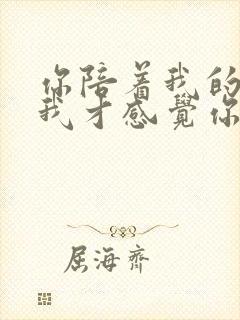 你陪着我的
我才感覺你
屈海齊